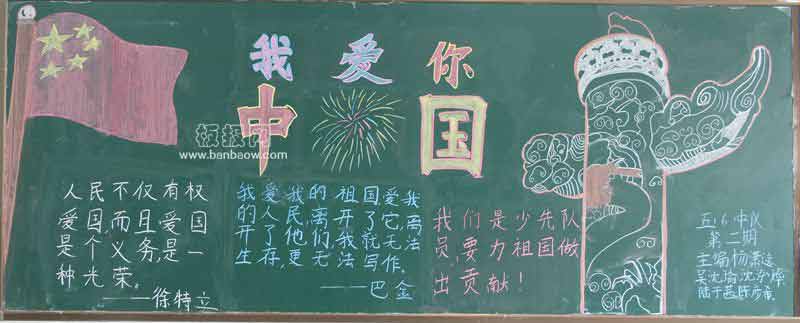 我爱你
中国
板报网
www.banbaow.com
人民不仅有权
爱国,而且爱国
是个义务,是一
种光荣。
——徐特立
我爱我的祖国爱我
的人民,离开了它,离
开了他们,我就无法
生存,更无法写作。
——巴金
我们是少先队
员,要力祖国做
出贡献!
五(6)中队
第二期
主编:杨